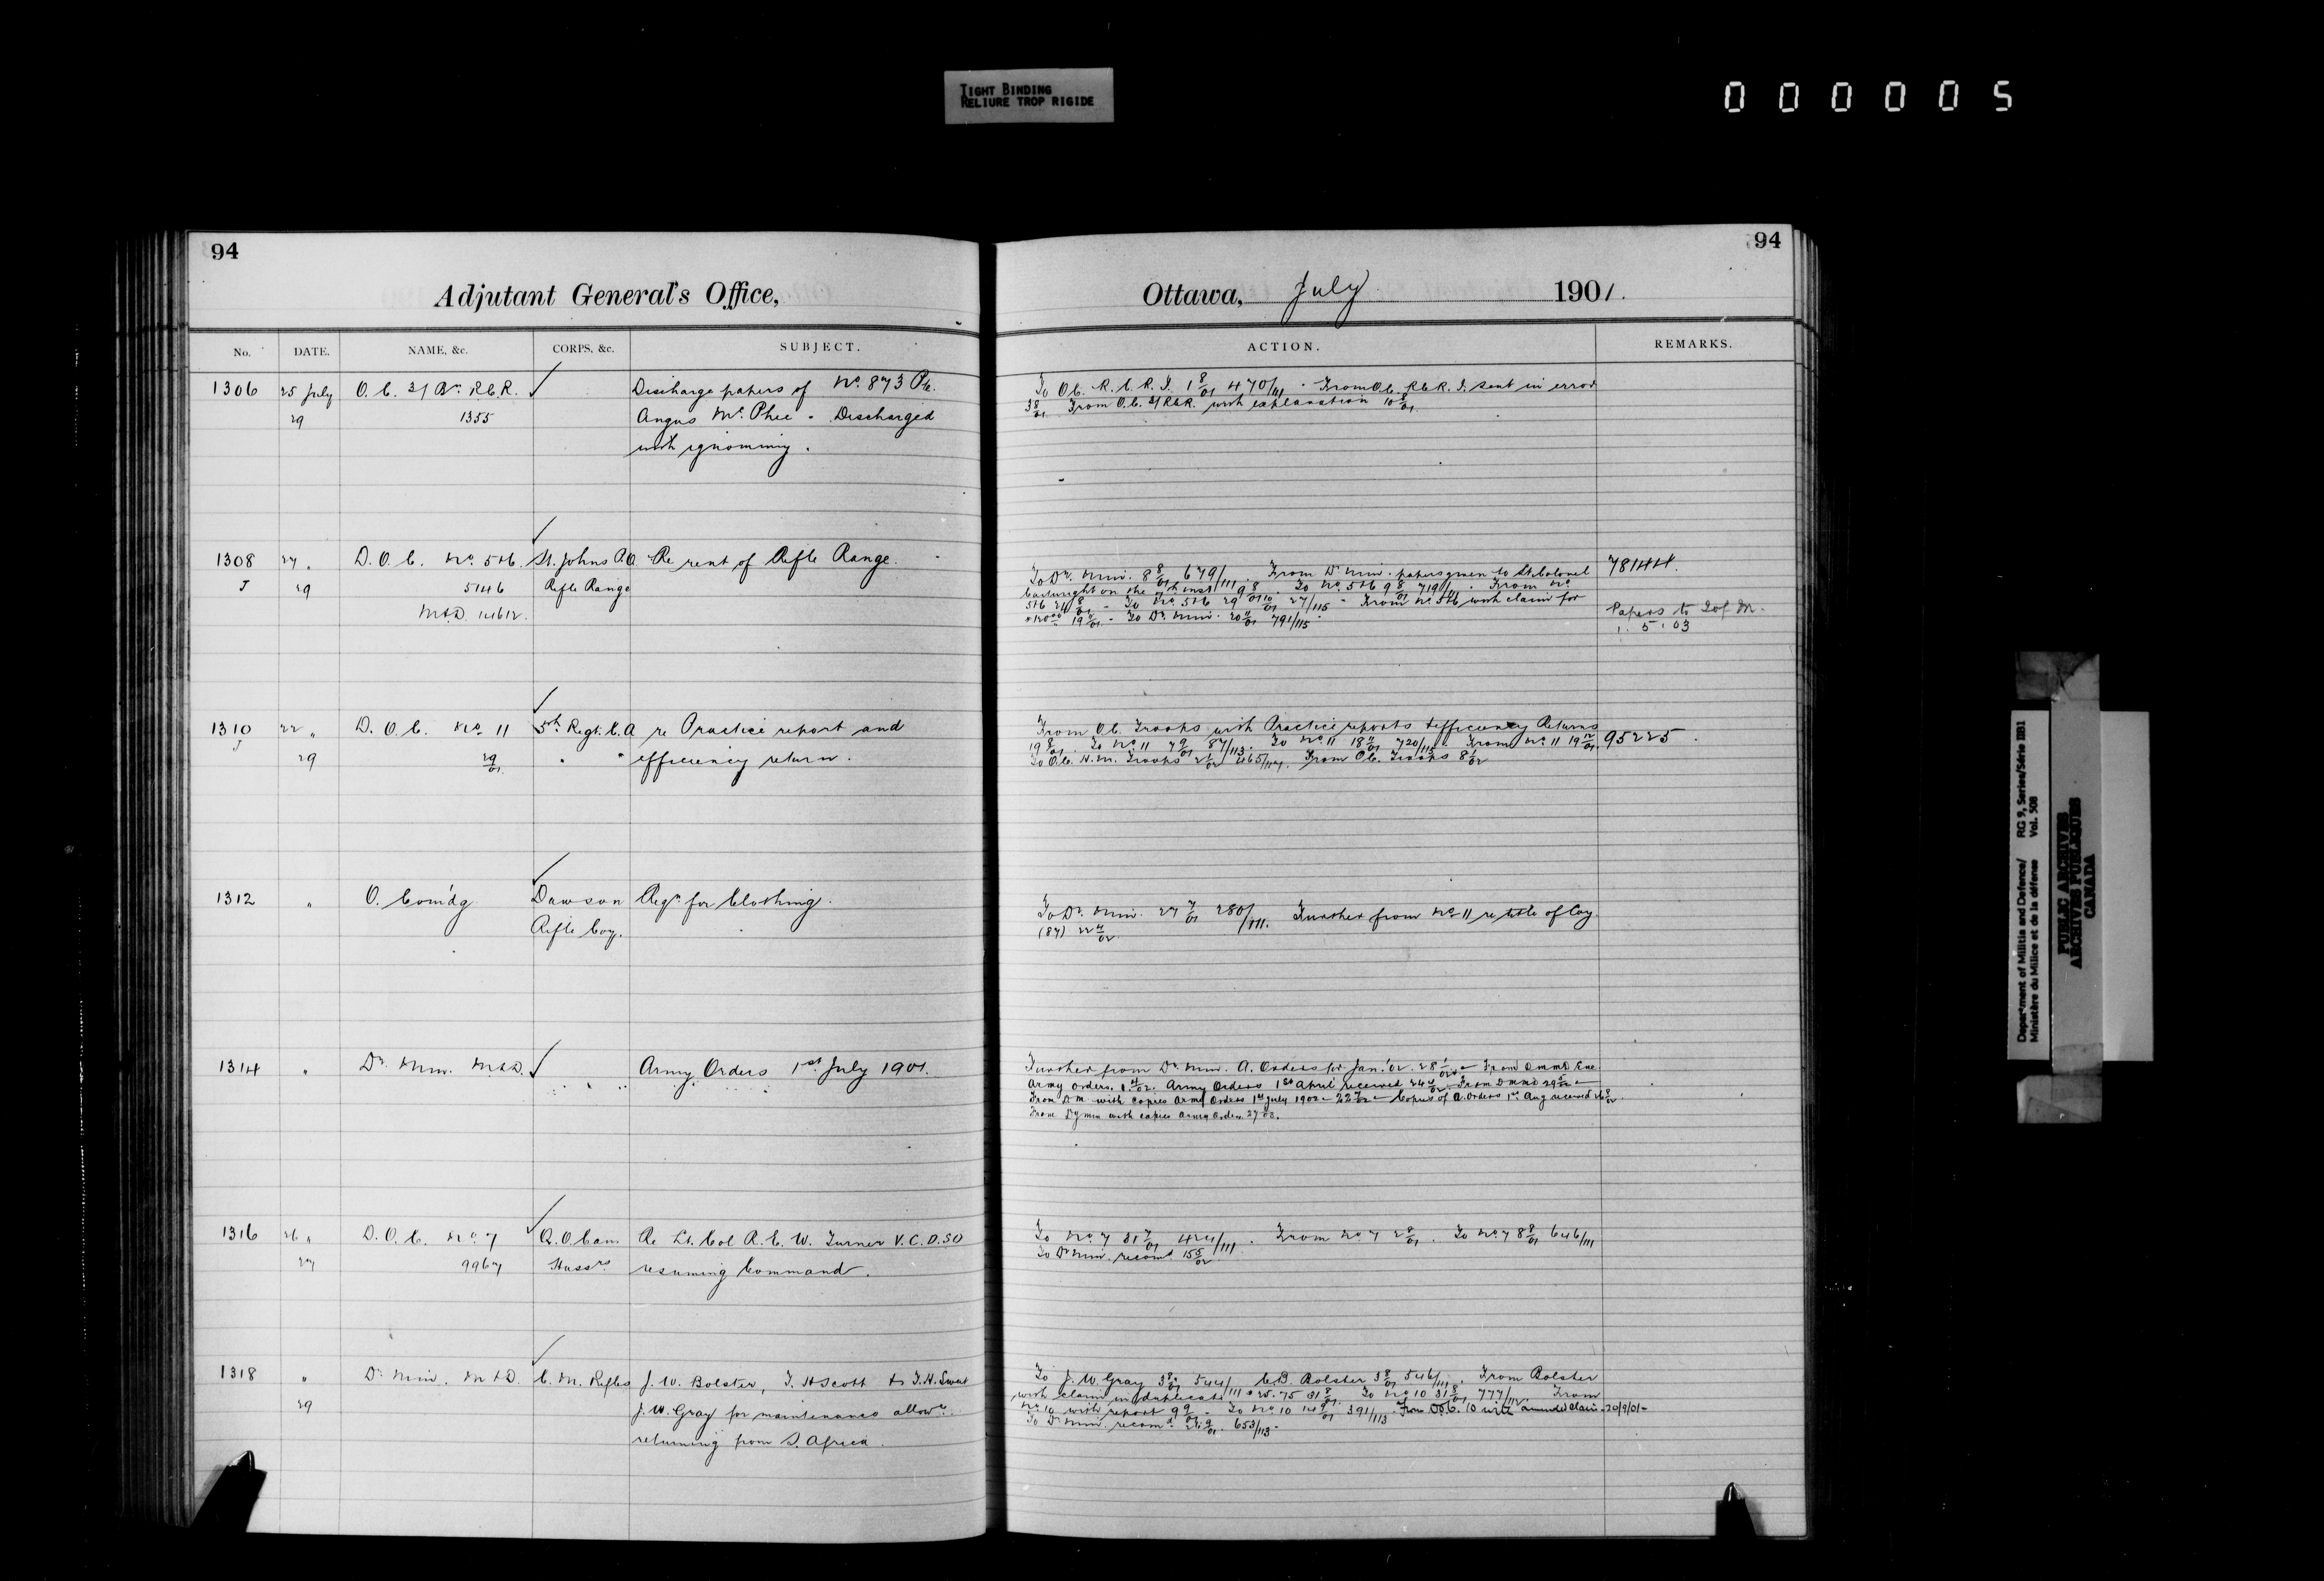 TIGHT BINDING
RELIURE TROP RIGIDE
000005
94
Adjutant General's Office,
No. DATE. NAME, &c. CORPS, &c. SUBJECT.
1306 25 July O.C. 21 Bn. R.C.R. Discharge papers of No. 873 Pte.
29 1355 Angus McPhee - Discharged
with ignominy.
1308 27 " D.O.C. No. 5&6. St. Johns P.Q. Re rent of Rifle Range.
J 29 5146 Rifle Range
M&D. 14612.
1310 22 " D.O.C. No. 11 5th Regt. C.A re Practice report and
J 29 29/01 " " efficiency return.
1312 " O. Com'dg. Dawson Reqn. for Clothing.
Rifle Coy.
1314 " Dr. Min. M&D. Army Orders 1st July 1901.
1316 26 " D.O.C. No. 7 Q.O.Can. Re Lt. Col R.E.W. Turner V.C.D.SO
27 9967 Hussrs. resuming Command.
1318 " Dr. Min. M&D. C.M. Rifles J.W. Bolster, T.H Scott & J.H.
29 J.W. Gray for maintenance allowce.
returning from S. Africa.
94
Ottawa, July 1901.
ACTION. REMARKS.
To O.C. R.C.R.I. 1 8/01 470/111 - From O.C. R.C.R.I. sent in error
3 8/01. From O.C. 21 R.C.R. with explanation 10 8/01.
To Dr. Min. 8 8/01 679/111. From Dr. Min. papers given to Lt. Colonel 78144.
Cartwright on the inst 9 8/01. To No. 5&6 9 8/01 719/111. From No.
5&6 24 8/01 - To No. 5&6 29 10/01 27/115 - From No. 5&6 with claim for
19 11/01 - To Dr. Min. 20 11/01 791/115. Papers to
1.5.03
From O.C. Troops with Practice reports & efficiency Returns
19 8/01. To No. 11 7 9/01 87/113. To No. 11 18 11/01 720/115. From No. 11 19 12/01 95225.
To O.C. H.M. Troops 2 1/02 465/117. From O.C. Troops 8 1/02
To Dr. Min. 27 7/01 280/111. Further from No. 11 re title of Coy.
(87) 22 4/02.
Further from Dr. Min. A. Orders for Jan. '02. 28 1/02. From DMM&D Enc.
Army orders. 1 4/02. Army Orders 1st April received 24 4/02. From DMM&D 29 5/02 -
From D M with copies Army Orders 1st July 1902 - 22 7/02 - Copies of A. Orders 1st Aug received
From Dy Min with copies Army Orders
To No. 7 31 7/01 424/111. From No. 7 2 8/01. To No. 7 8 8/01 646/111
To Dr. Min. recomd 15 5/02.
To J.W. Gray 3 8/01 544/111 C.B. Bolster 3 8/01 546/111. From Bolster
with claim in duplicate 31 8/01. To No 10 31 8/01 777/112. From
No. 10 with report 9 9/01 - To No 10 14 9/01 391/113. From D.O.C. 10 with amended claim - 20/9/01 -
To Dr. Min. recomd. 21 9/01. 653/113 -
Department of Militia and Defence/ RG 9, Series/Série IIB1
Ministère du Milice et de la défense Vol. 508
PUBLIC ARCHIVES
ARCHIVES PUBLIQUES
CANADA